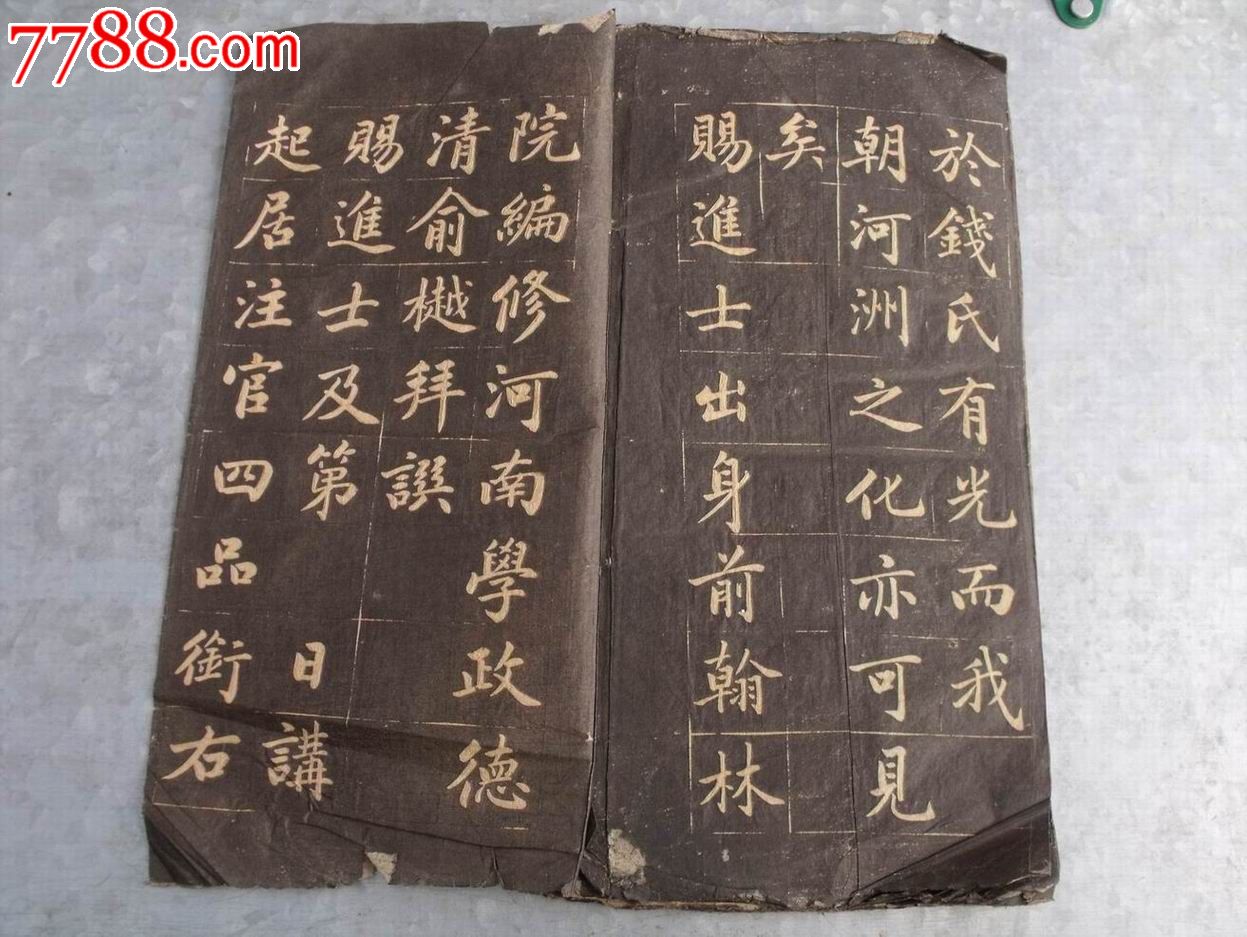 7788.com
於錢氏有光而我
朝河洲之化亦可見
矣
賜進士出身前翰林
院編修河南學政德
清俞樾拜譔
賜進士及第日講
起居注官四品銜右